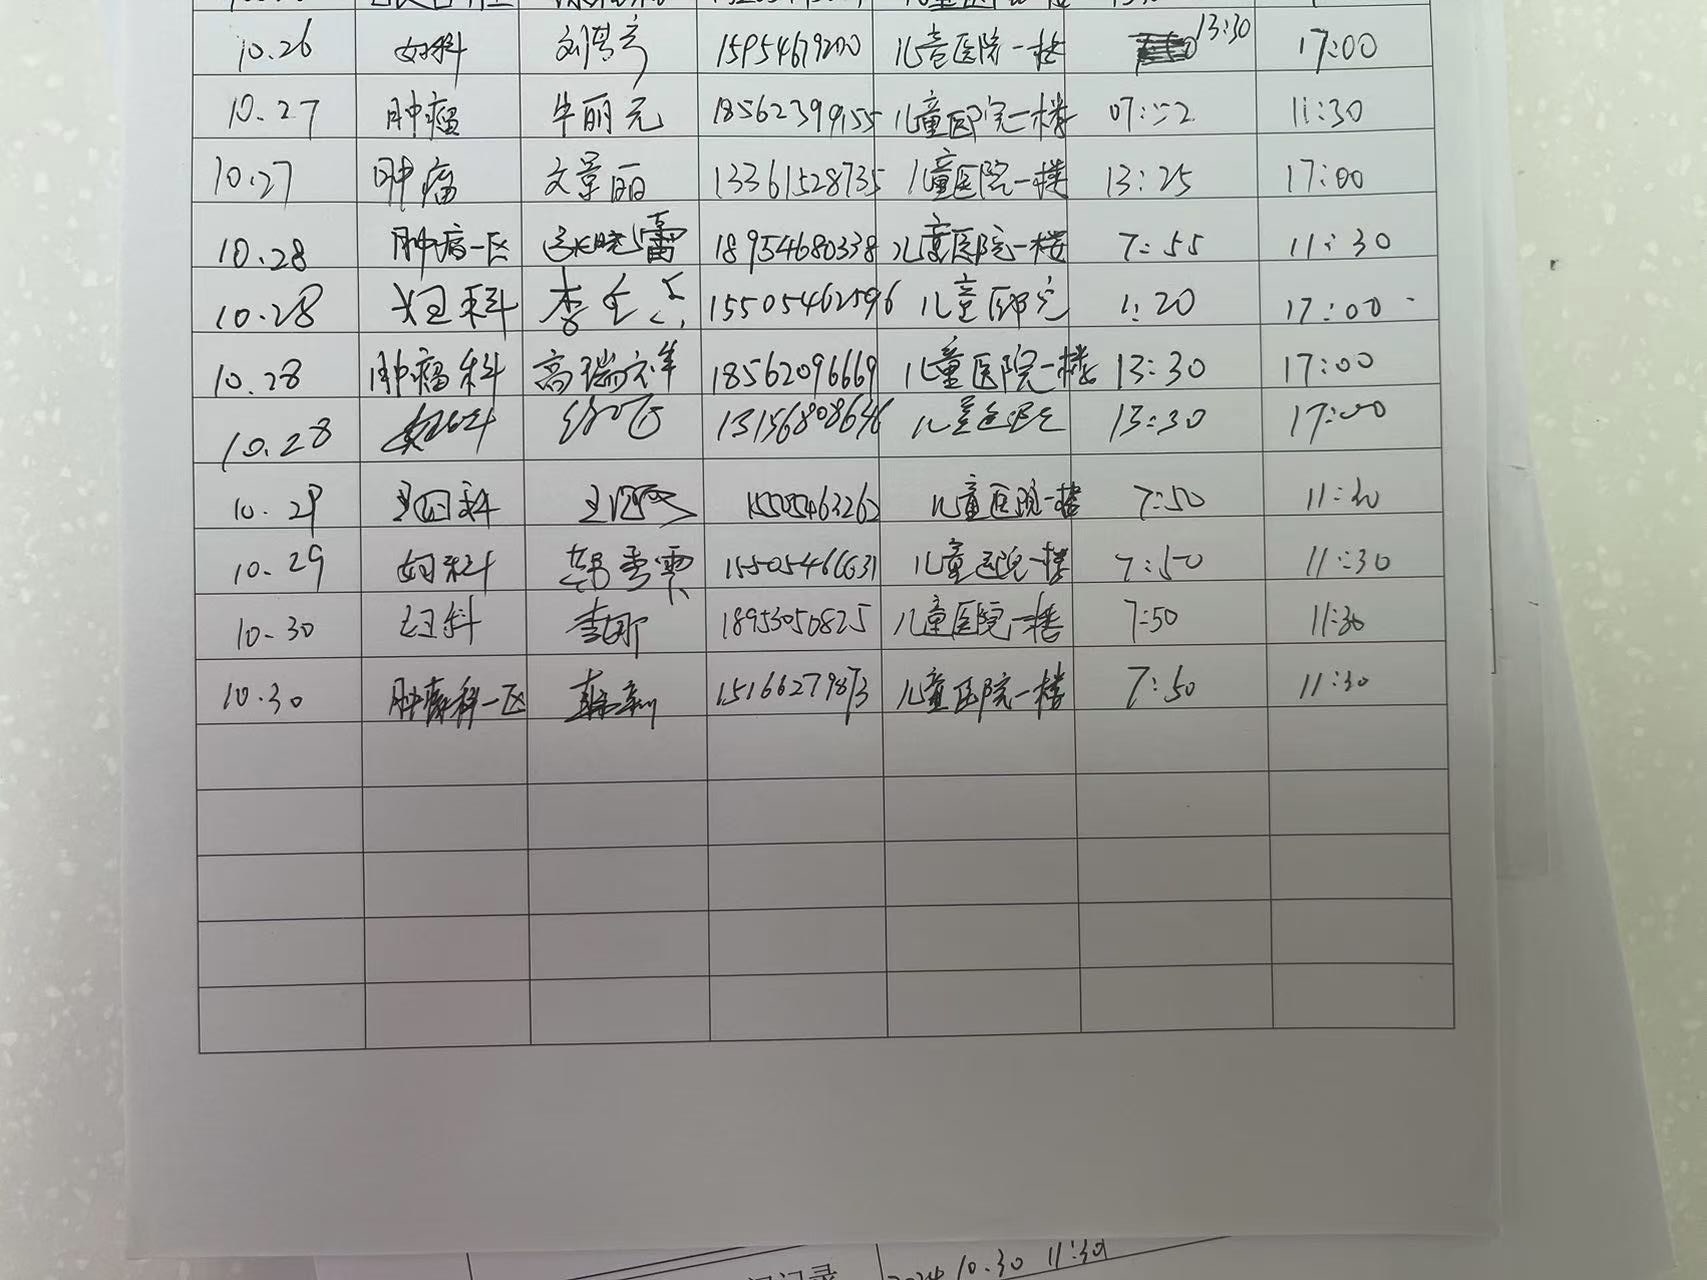 10.26 妇科 刘 15954679200 儿童医院一楼 13:30 17:00
10.27 肿瘤 牛丽元 18562399155 儿童医院一楼 07:52 11:30
10.27 肿瘤 文景丽 13361528735 儿童医院一楼 13:25 17:00
10.28 肿瘤一区 18954680338 儿童医院一楼 7:55 11:30
10.28 妇科 李 15505462596 儿童医院 1:20 17:00
10.28 肿瘤科 高瑞祥 18562096669 儿童医院一楼 13:30 17:00
10.28 妇科 13156808646 儿童医院 13:30 17:00
10.29 科 王 15505463262 儿童医院一楼 7:50 11:30
10.29 妇科 15505466631 儿童医院一楼 7:50 11:30
10.30 妇科 李那 18953050825 儿童医院一楼 7:50 11:30
10.30 肿瘤科一区 15166279873 儿童医院一楼 7:50 11:30
记录 2024 10.30 11:30